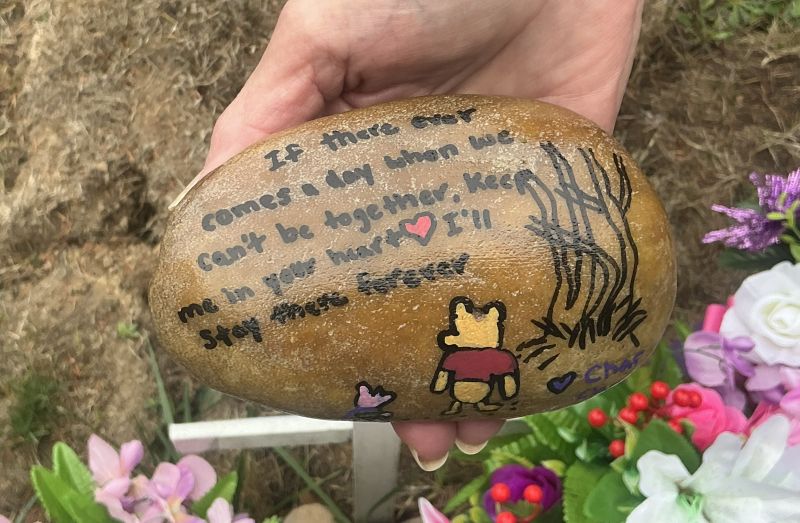 If there ever
comes a day when we
can't be together, Keep
me in your heart I'll
Stay there forever